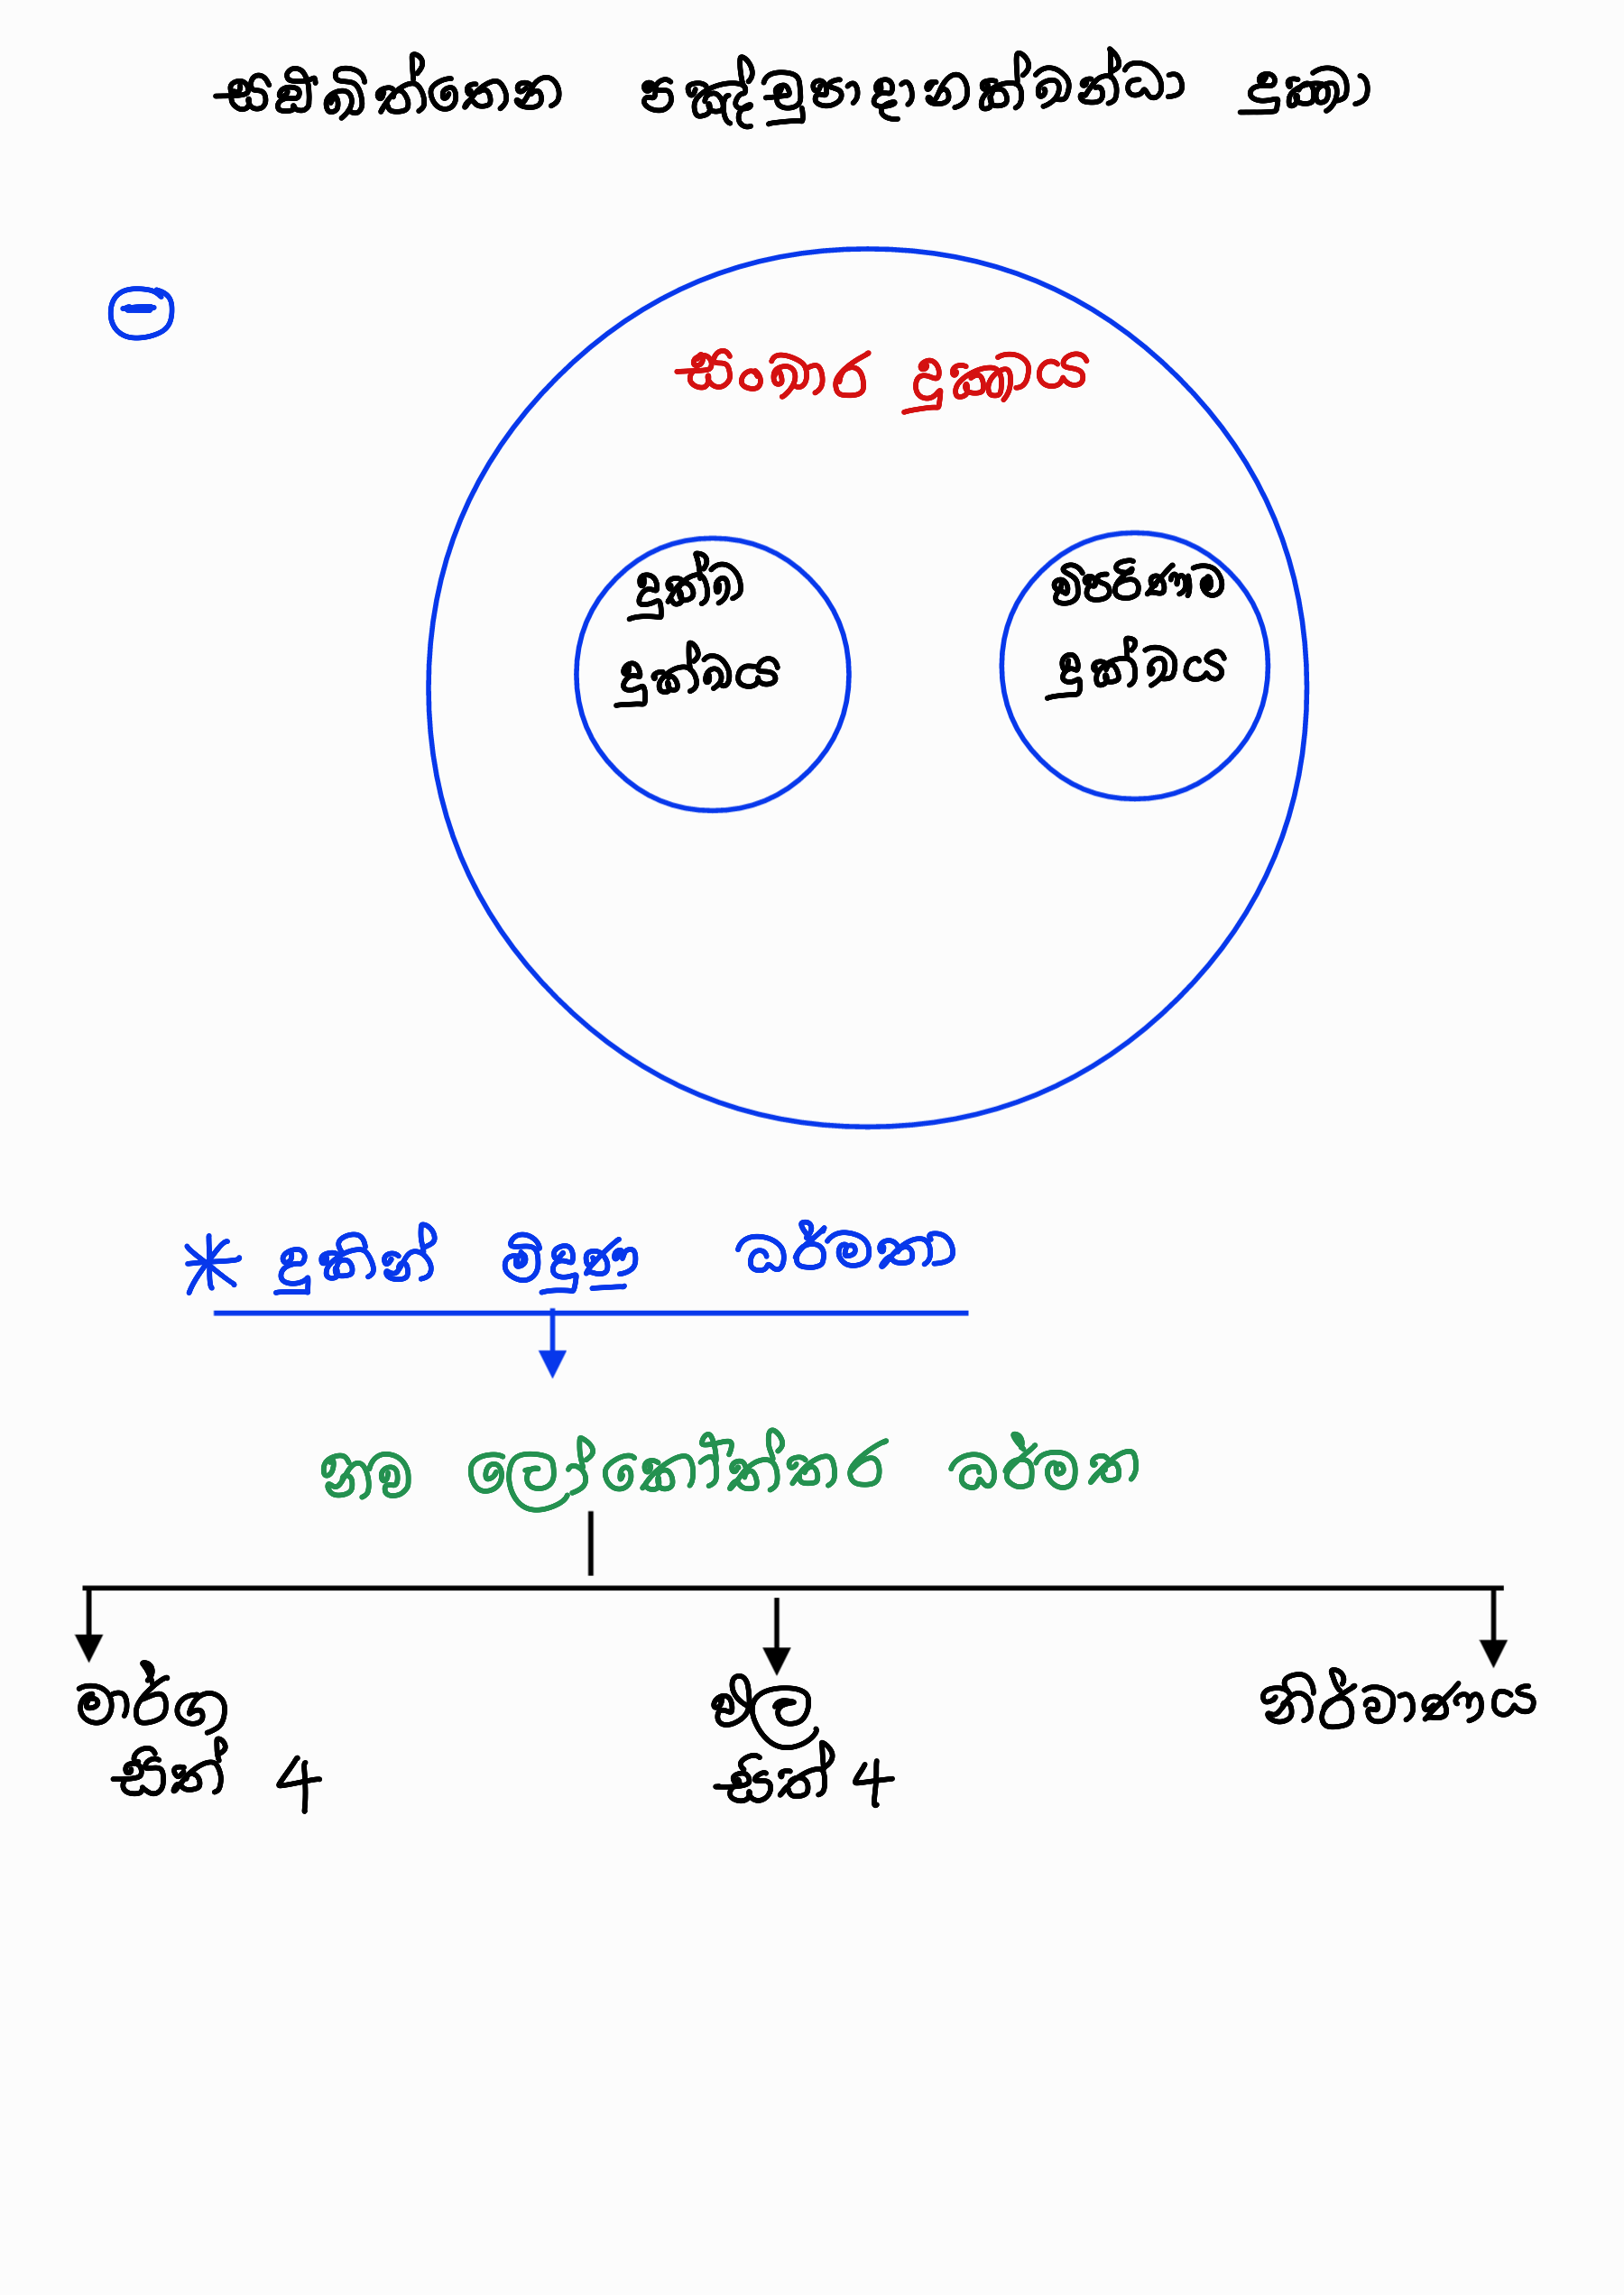 සඞ්ඛිත්තෙන පඤ්චුපාදානක්ඛන්ධා දුක්ඛා
සංඛාර දුක්ඛය
දුක්ඛ
දුක්ඛය
විපරිණාම
දුක්ඛය
* දුකින් මිදුණ ධර්මතා
නව ලෝකෝත්තර ධර්මත
මාර්ග
සිත් 4
ඵල
සිත් 4
නිර්වාණය